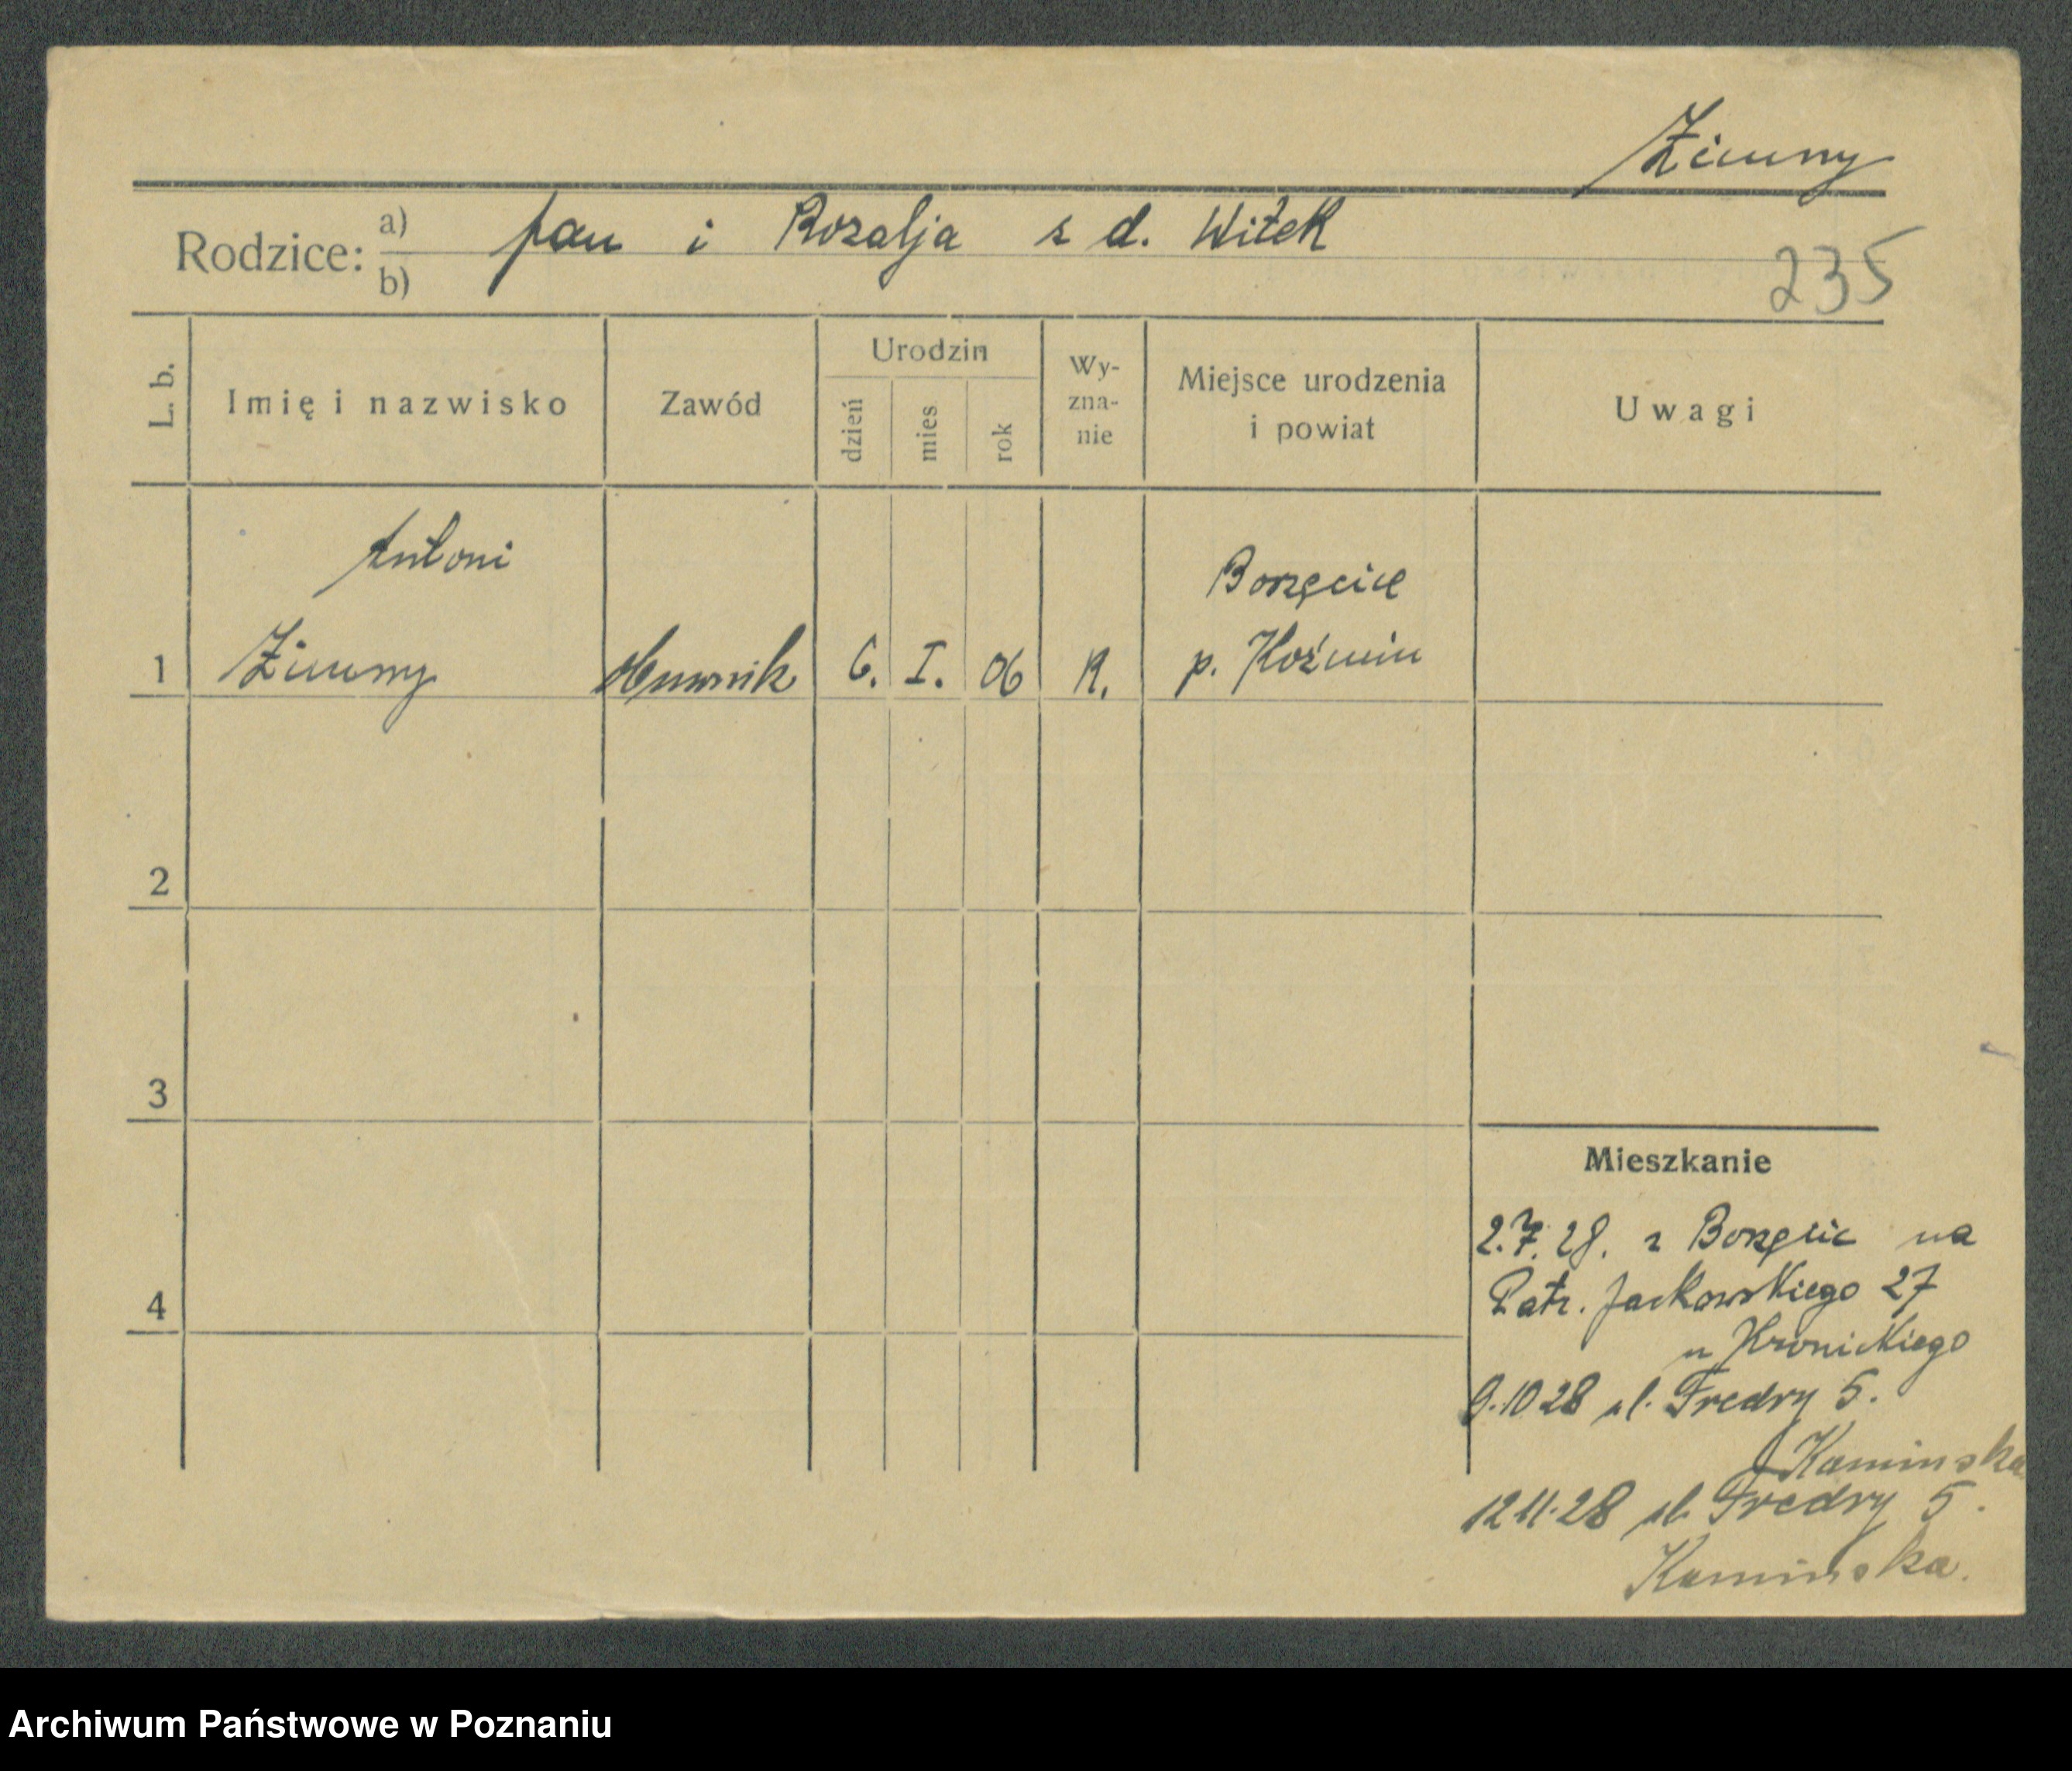 Zimny
Rodzice: a) Jan i Rozalja z d. Witek
b)
235
L. b.
Imię i nazwisko
Zawód
Urodzin
dzień
mies
rok
Wy-
zna-
nie
Miejsce urodzenia
i powiat
Uwagi
Antoni
Borzęcice
1 Zimny 6. I. 06 R. p. Koźmin
2
3
4
Mieszkanie
2.7.28. z Borzęcic na
Patr. Jackowskiego 27
u
9.10 28 ul. Fredry 5.
Kaminska
12 11. 28 ul. Fredry 5.
Kaminska.
Archiwum Państwowe w Poznaniu